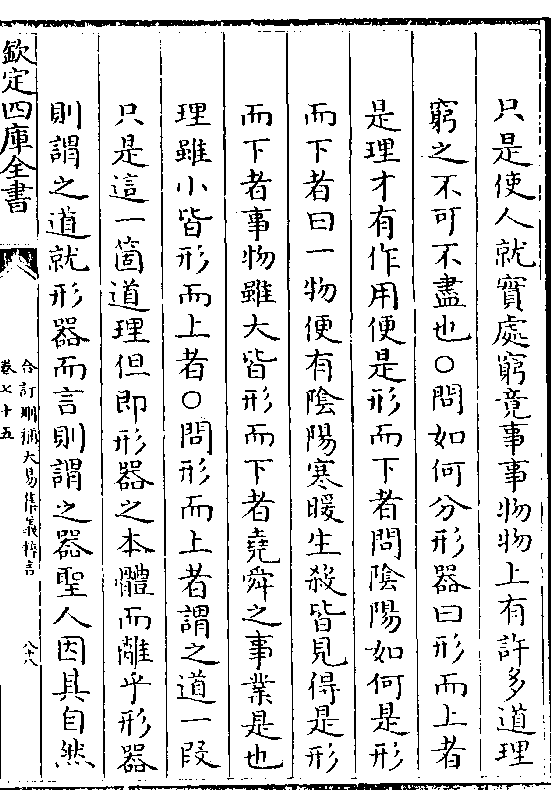 只是使人就實處窮竟事事物物上有許多道理
窮之不可不盡也○問如何分形器曰形而上者
是理才有作用便是形而下者問陰陽如何是形
而下者曰一物便有陰陽寒暖生殺皆見得是形
而下者事物雖大皆形而下者堯舜之事業是也
理雖小皆形而上者○問形而上者謂之道一段
只是這一箇道理但即形器之本體而離乎形器
則謂之道就形器而言則謂之器聖人因其自然
欽定四庫全書
合訂刪補大易集義粹言
卷七十五
六十八